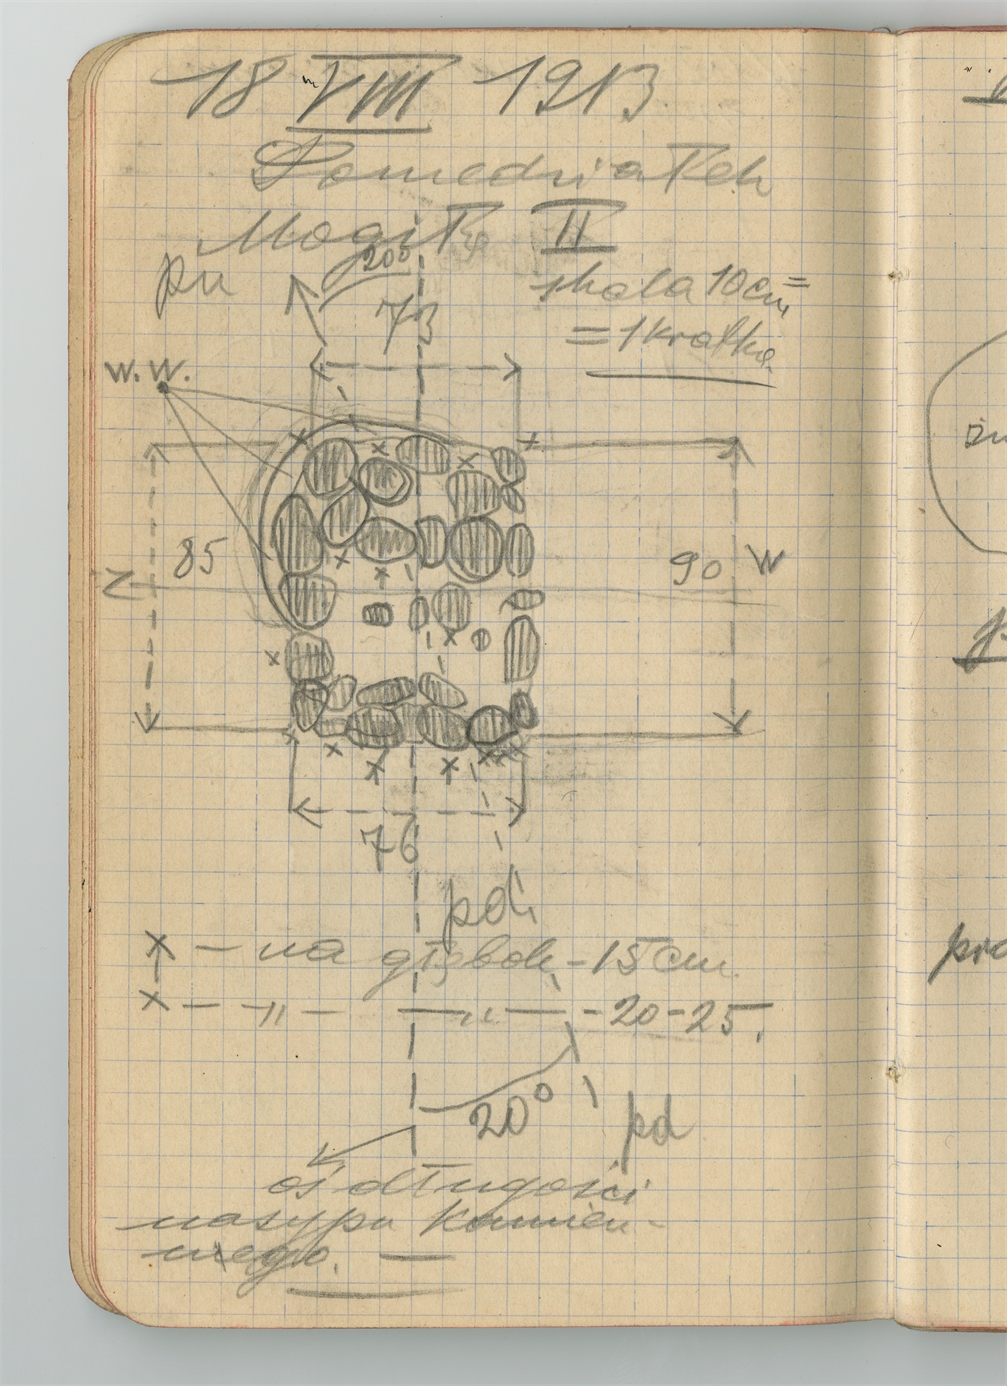 18 VIII 1913
Poniedziałek
Mogiła II
pn
20°
skala 10cm=
73
=1 kratka
W.W.
85
90
W
Z
76
pd.
x — na głębok - 15 cm.
x — 〃 — — 〃 — - 20-25.
20°
pd
oś długości
nasypu kamien-
nego. —
pro